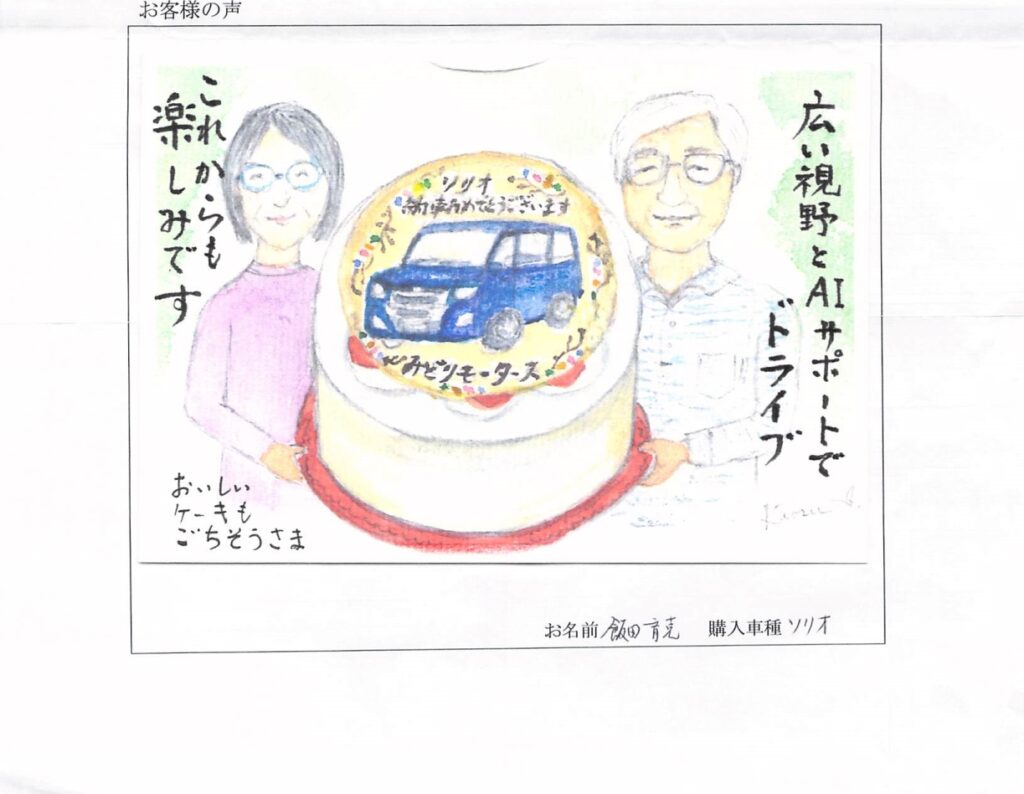 お客様の声
広い視野とAIサポートで
ドライブ
これからも
楽しみです
ソリオ
納車おめでとうございます
みどりモータース
おいしい
ケーキも
ごちそうさま
お名前 飯田育克 購入車種 ソリオ